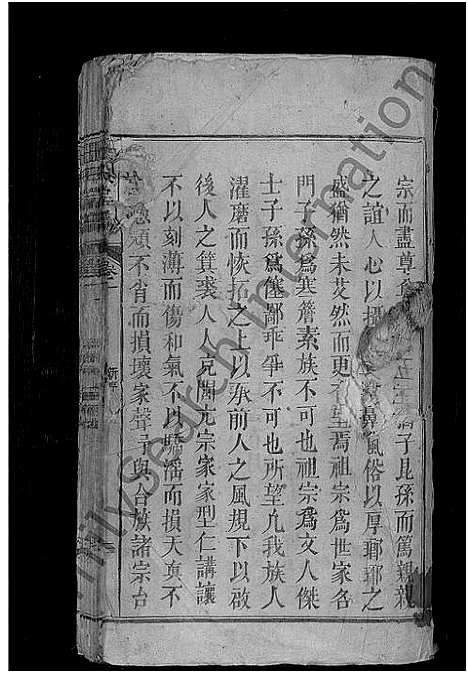 宗而盡尊子昆孫而篤親親
之誼人心以風俗以厚瑯琊之
盛猶然未艾然而更不望焉祖宗為世家名
門子孫為寒簷素族不可也祖宗為文人傑
士子孫為傖鄙乖爭不可也所望凡我族人
濯磨而恢拓之上以承前人之風規下以啟
後人之箕裘人人克閑亢宗家家型仁講讓
不以刻薄而傷和氣不以驕淫而損天真不
頑不肖而損壞家聲予與合族諸宗台
FamilySearch International